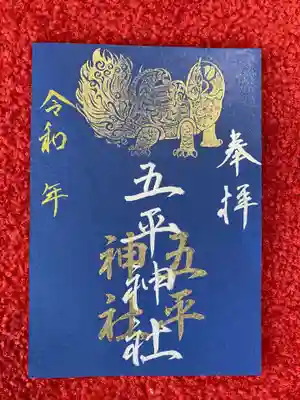 奉拝
五平神社
五平
神社
令和 年